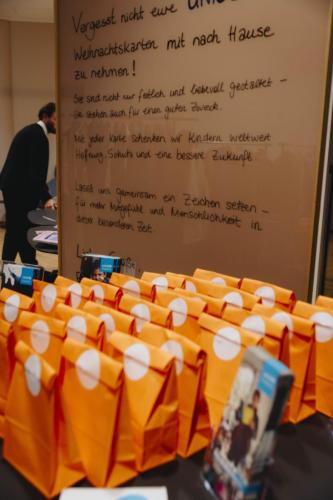 Vergesst nicht eure UNIC
Weihnachtskarten mit nach Hause
zu nehmen!
Sie sind nicht nur festlich und liebevoll gestaltet –
sie stehen auch für einen guten Zweck.
Mit jeder Karte schenken wir Kindern weltweit
Hoffnung, Schutz und eine bessere Zukunft.
Lasst uns gemeinsam ein Zeichen setzen –
für mehr Mitgefühl und Menschlichkeit in
dieser besonderen Zeit.